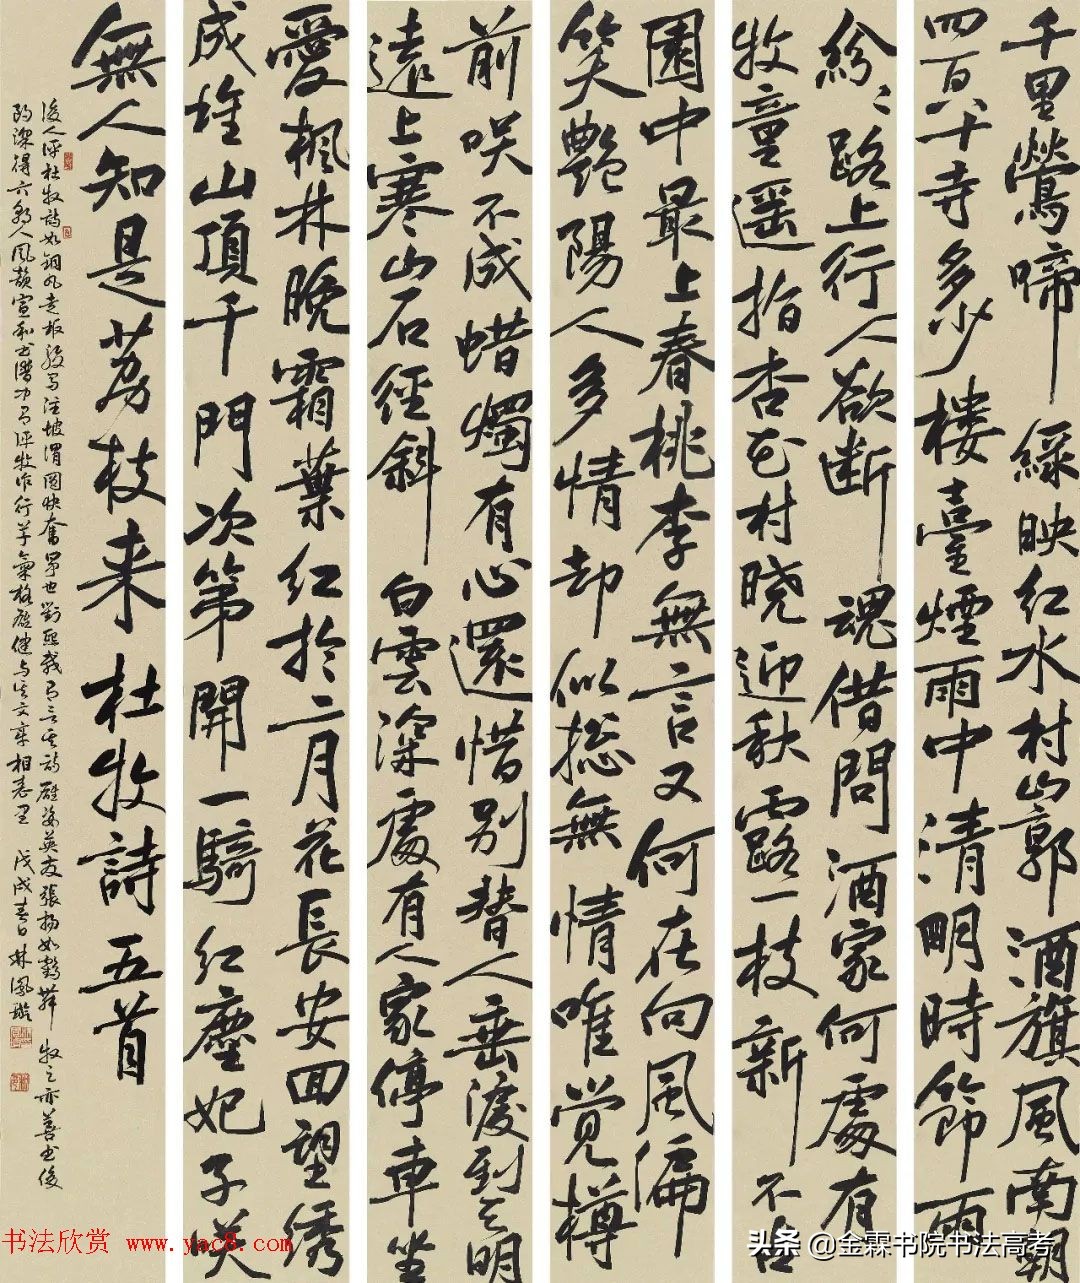 千里鶯啼綠映红水村山郭酒旗風南朝
四百八十寺多少樓臺煙雨中清明時節雨
紛紛路上行人欲断魂借問酒家何處有
牧童遥指杏花村晓迎秋露一枝新不占
園中最上春桃李無言又何在向風偏
笑艷陽人多情却似總無情唯觉樽
前笑不成蜡燭有心還惜别替人垂淚到天明
遠上寒山石徑斜白雲深處有人家停車坐
愛楓林晚霜葉红於二月花長安回望绣
成堆山頂千門次第開一騎红塵妃子笑
無人知是荔枝来杜牧詩五首
後人评杜牧詩如銅丸走板骏马注坡謂圓快奮昂也劉熙载有言其詩雄姿英發張揚如鹤舞牧之亦善书
深得六朝人風韻宣和书谱评牧作行草氣格雄健与其文章相表里戊戌春日林鳳
书法欣赏 www.yac8.com
头条 @金霖书院书法高考